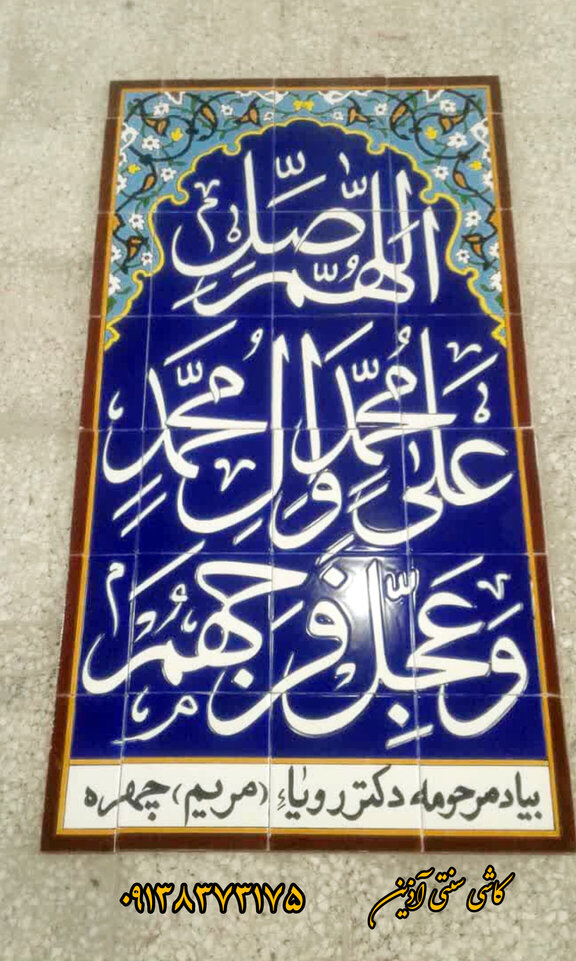 اللّهمّ صلّ
علی محمّد وال محمّدٍ
و عجّل فرجهم
بیاد مرحومه دکتر رویاء (مریم) چهره
کاشی سنتی آذین
۰۹۱۳۸۳۷۳۱۷۵